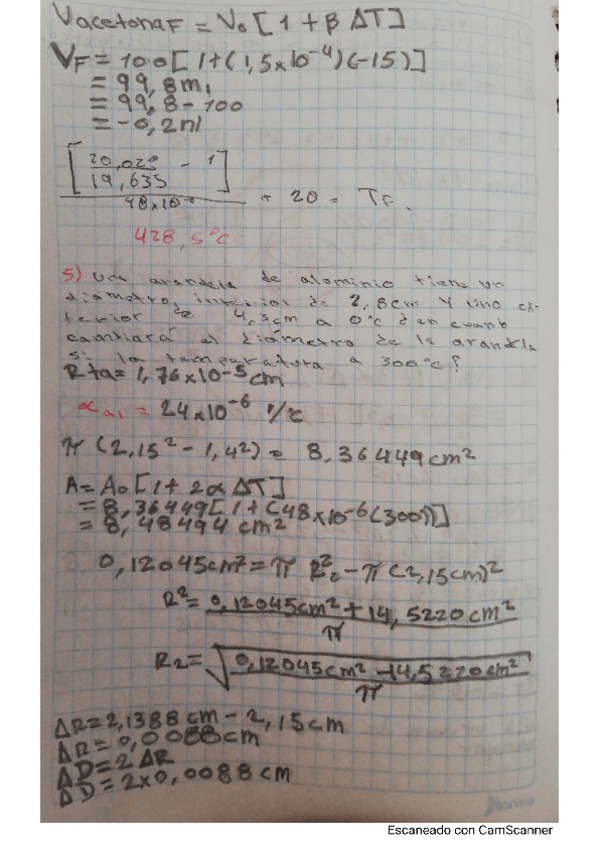 Vacetona F = V₀ [1 + β ΔT]
VF = 100 [1+(1,5x10⁻⁴)(-15)]
= 99,8 m,
= 99,8 - 100
= -0,2 nl
[20,020/19,635 - 1] / 48x10⁻⁶ + 20 = TF.
428,5°C
5) Una arandela de aluminio tiene un
diametro, interior de 2,8cm y uno ex-
terior de 4,3cm a 0°C d en cuanto
cambiará el diámetro de la arandela
si la temperatura a 300°C?
Rta = 1,76x10-5cm
α al = 24x10⁻⁶ 1/°C
π (2,15² - 1,4²) = 8,36449 cm²
A = A₀ [1 + 2α ΔT]
= 8,36449 [1 + (48x10⁻⁶(300))]
= 8,48494 cm²
0,12045cm² = π R₂² - π (2,15cm)²
R² = 0,12045cm² + 14,5220 cm² / π
R₂ = √(0,12045cm² - 14,5220cm² / π)
ΔR = 2,1388 cm - 2,15cm
ΔR = 0,0088cm
ΔD = 2 ΔR
ΔD = 2x0,0088 cm
Norma
Escaneado con CamScanner